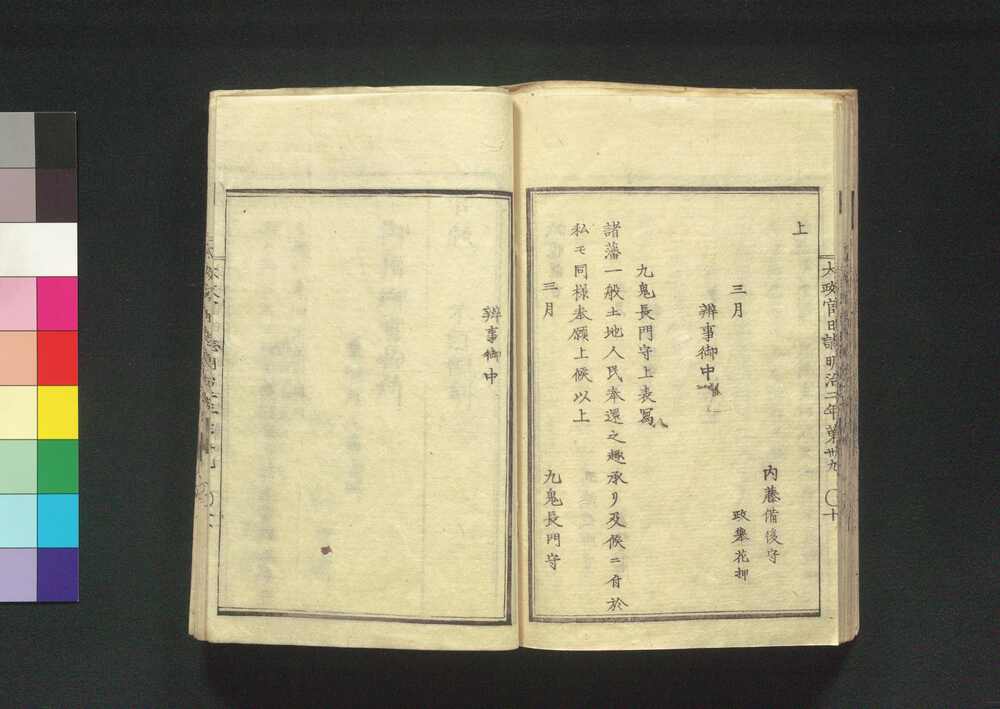 大政官日誌明治二年第卅九
十
上
内藤備後守
三月
政擧花押
辨事御中
九鬼長門守上表寫
諸藩一般土地人民奉還之趣承リ及候ニ付於
私モ同様奉願上候以上
三月
九鬼長門守
辨事御中